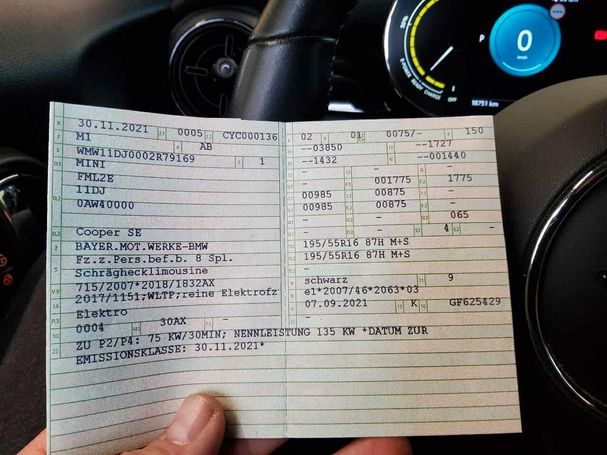 50%
P
0
km/h
E-POWER READY CHARGE OFF
98751 km
30.11.2021 0005 CYC000136
M1 AB
WMW11DJ0002R79169 1
MINI
FML2E
11DJ
0AW40000
Cooper SE
BAYER.MOT.WERKE-BMW
Fz.z.Pers.bef.b. 8 Spl.
Schräghecklimousine
715/2007*2018/1832AX
2017/1151;WLTP;reine Elektrofz
Elektro
0004 30AX -
02 01 0075/- 150
--03850 --1727
--1432 --001440
- - -
- 001775 1775
00985 00875 -
00985 00875 -
- - 065
- - 4 -
195/55R16 87H M+S
195/55R16 87H M+S
-
schwarz 9
e1*2007/46*2063*03
07.09.2021 K GF625429
ZU P2/P4: 75 KW/30MIN; NENNLEISTUNG 135 KW *DATUM ZUR
EMISSIONSKLASSE: 30.11.2021*